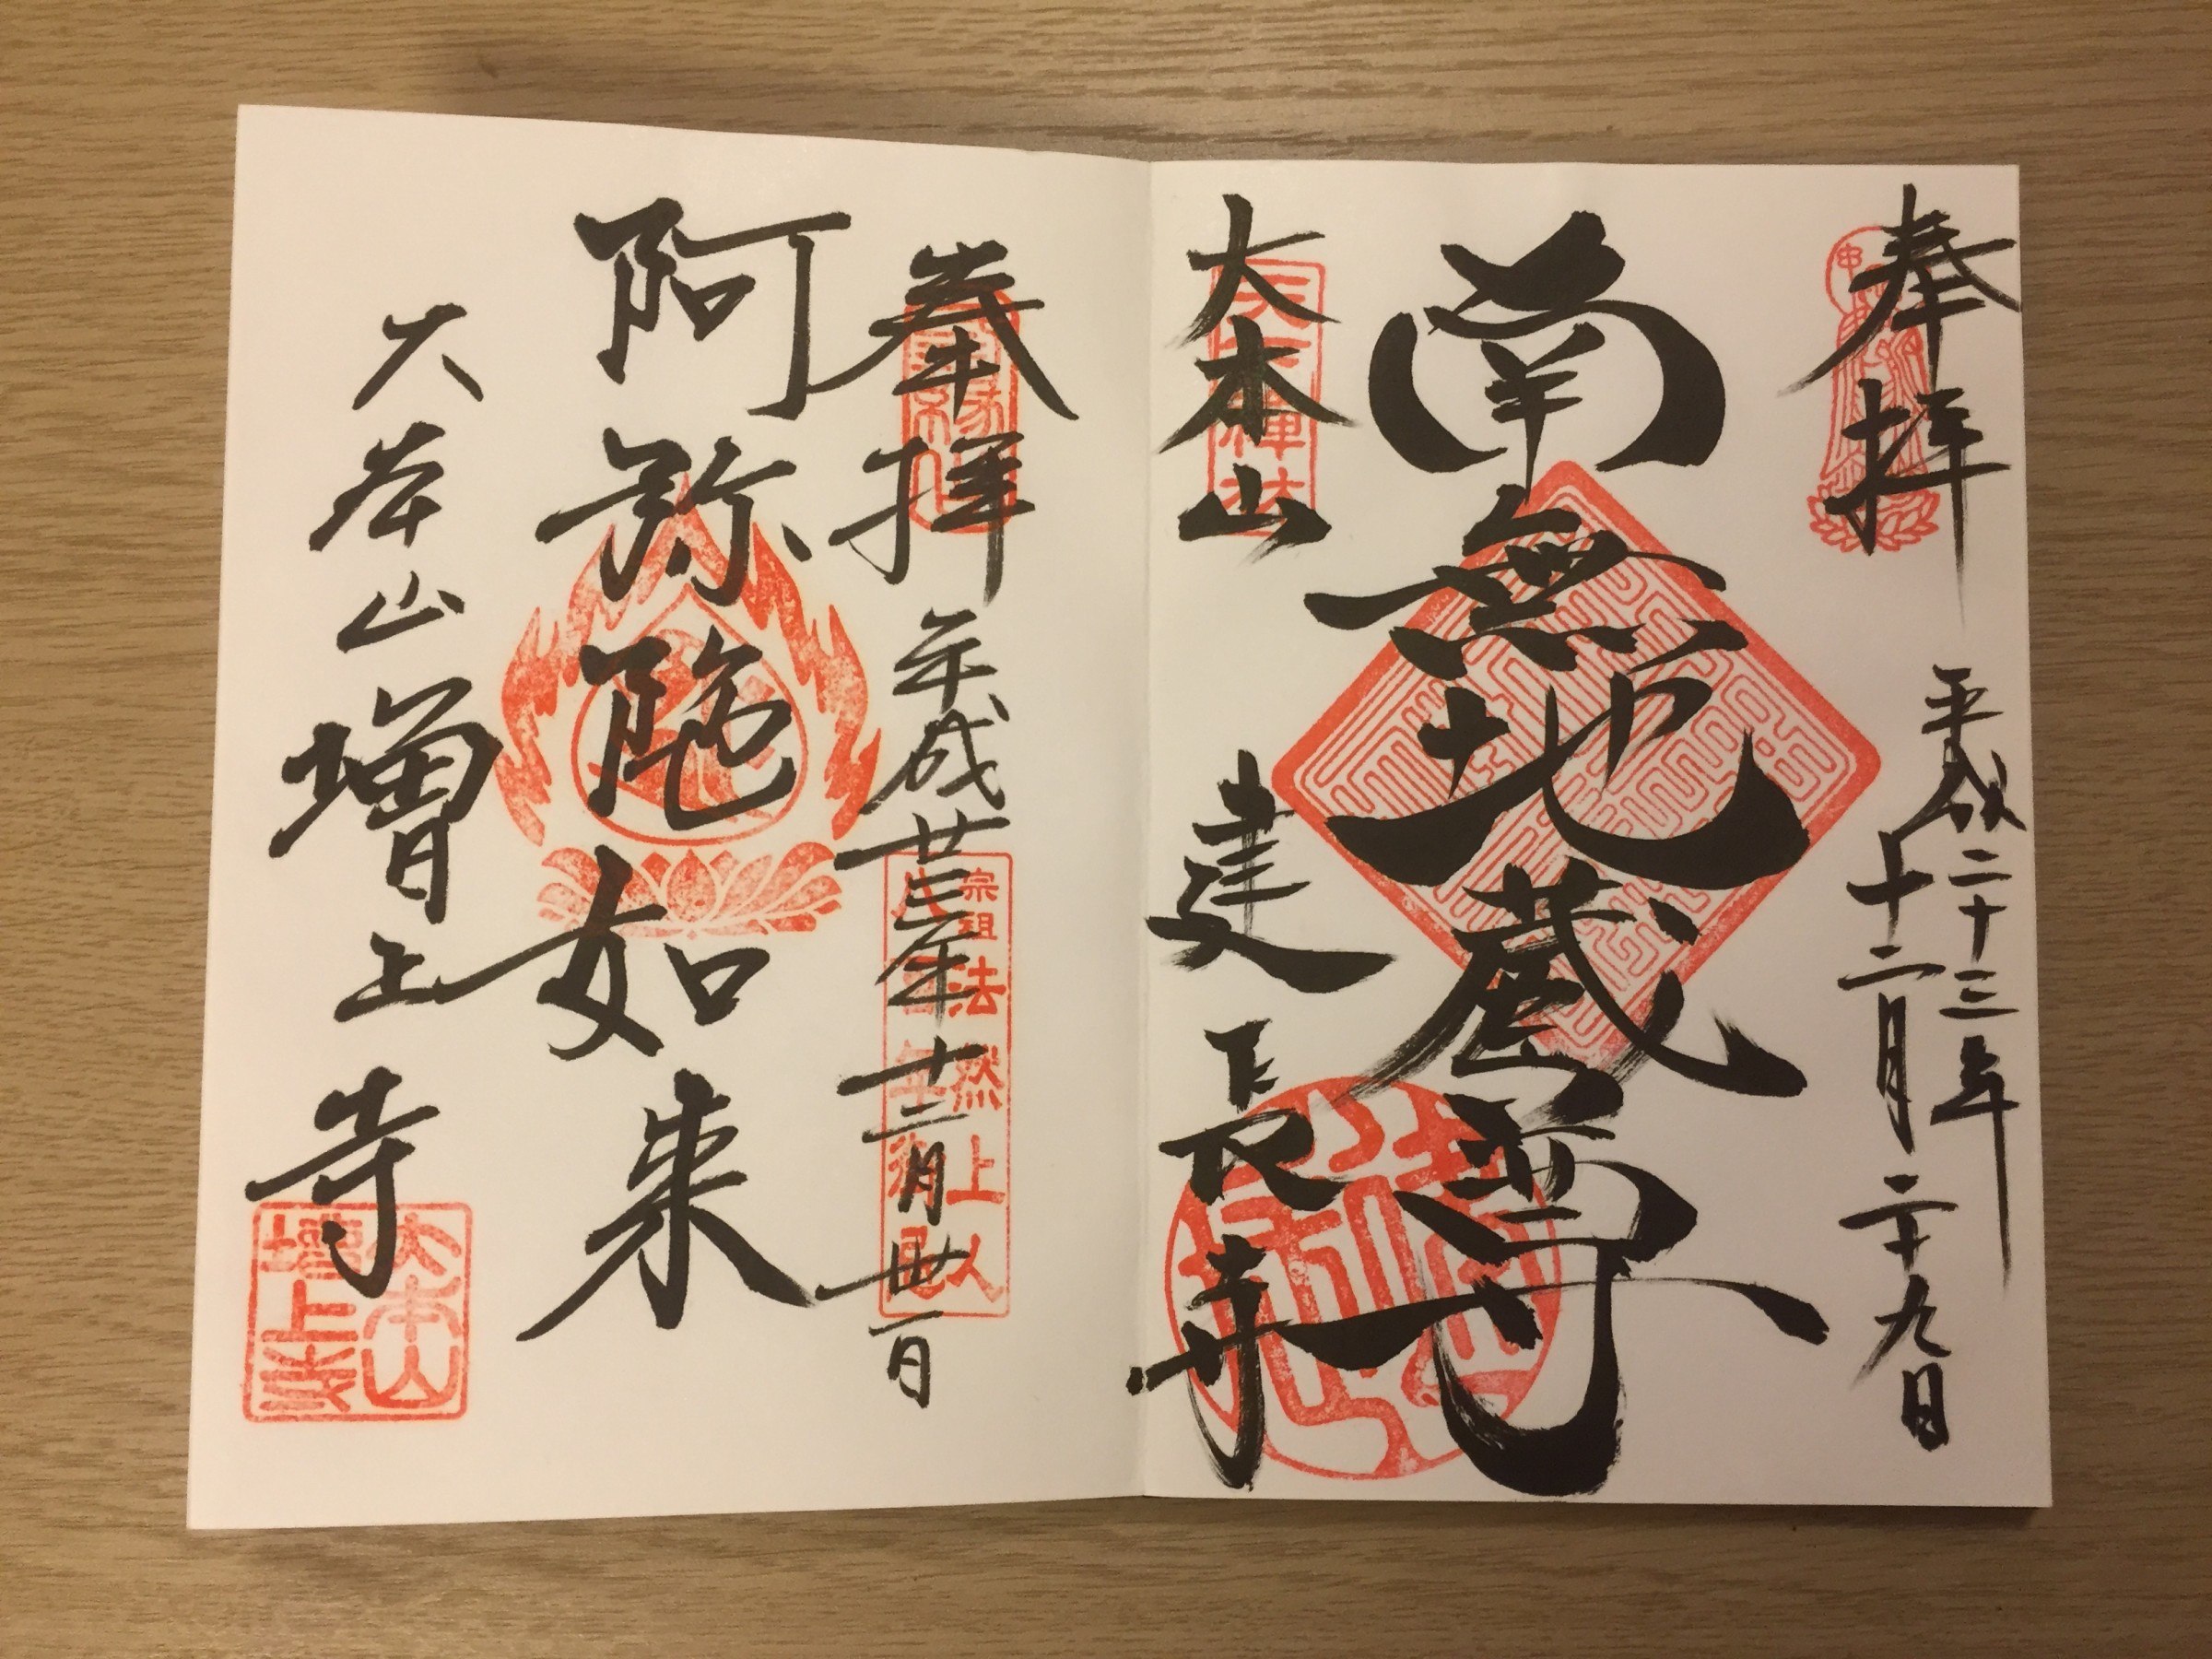 奉拝
平成二十三年
十二月二十九日
南無地蔵尊
大本山
建長寺
奉拝
平成廿三年十二月卅一日
宗祖法然上人
阿弥陀如来
大本山増上寺
大本山
増上寺